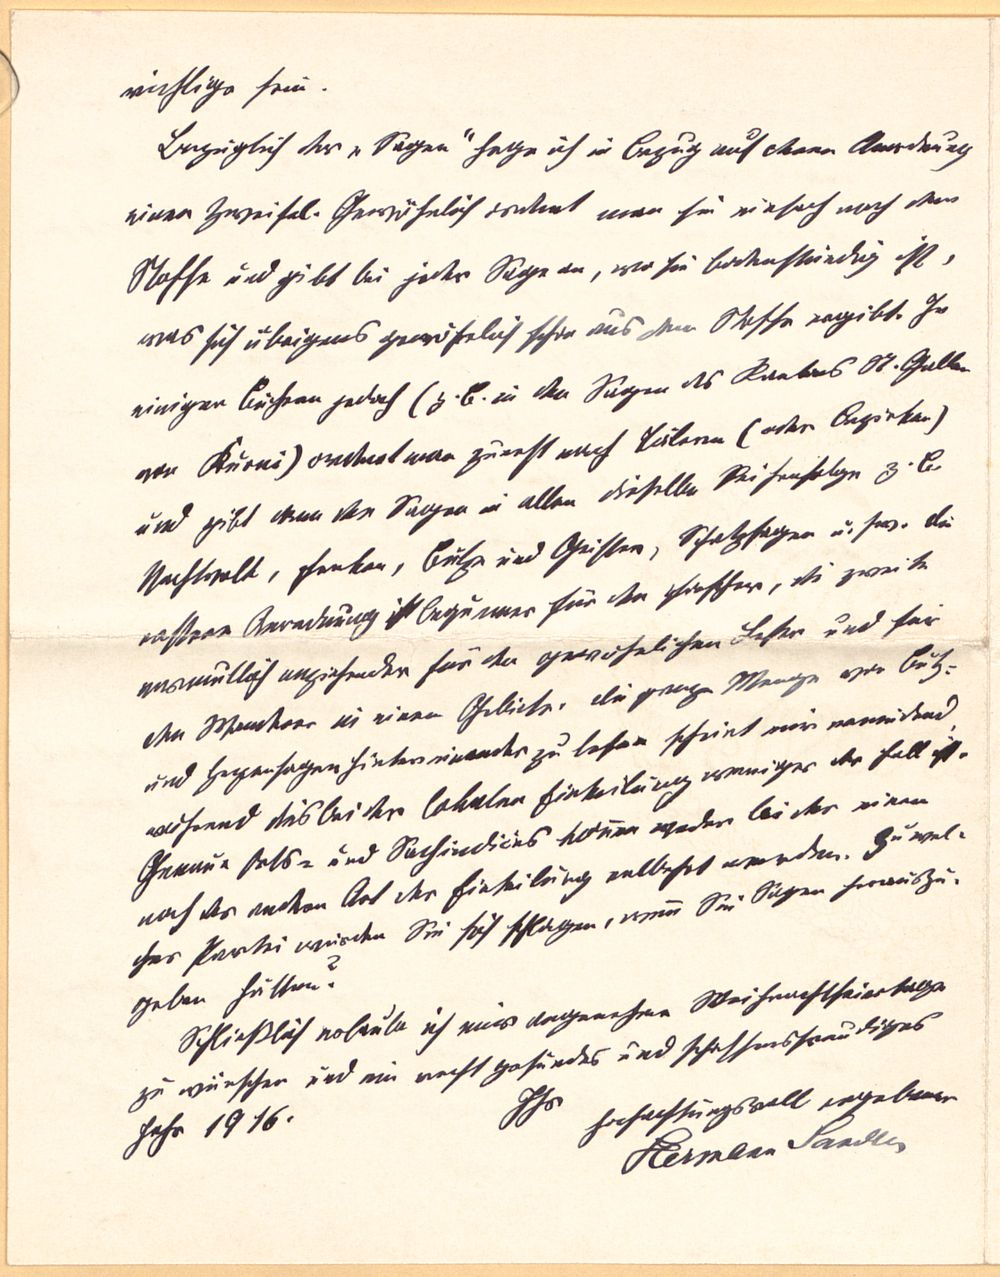 wichtige sein.
Bezüglich der „Sagen" hege ich in Bezug auf deren Anordnung
einen Zweifel. Gewöhnlich ordnet man sie einfach nach dem
Stoffe und gibt bei jeder Sage an, wo sie bodenständig ist,
was sich übrigens gewöhnlich schon aus dem Stoffe ergibt. In
einigen Büchern jedoch (z. B. in den Sagen des Kantons St. Gallen
von Kuoni) ordnet man zuerst nach Tälern (oder Bezirken)
und gibt dann die Sagen in allen dieselbe Reihenfolge z. B.
Nachtvolk, Fenken, Butze und Geister, Schatzsagen u. sw. Die
erstere Anordnung ist bequemer für den Forscher, die zweite
vermutlich anziehender für den gewöhnlichen Leser und für
den Wanderer in einem Gebiete. Die ganze Menge von Butz-
und Hexensagen hintereinander zu lesen scheint mir ermüdend,
während dies bei der lokalen Einteilung weniger der Fall ist.
Genaue Orts- und Sachindices können weder bei der einen
noch der andern Art der Einteilung entbehrt werden. Zu wel-
cher Partei würden Sie sich schlagen, wenn Sie Sagen herauszu-
geben hätten?
Schließlich erlaube ich mir angenehme Weihnachtsfeiertage
zu wünschen und ein recht gesundes und schaffensfreudiges
Jahr 1916.
Ihr
hochachtungsvoll ergebener
Hermann Sander